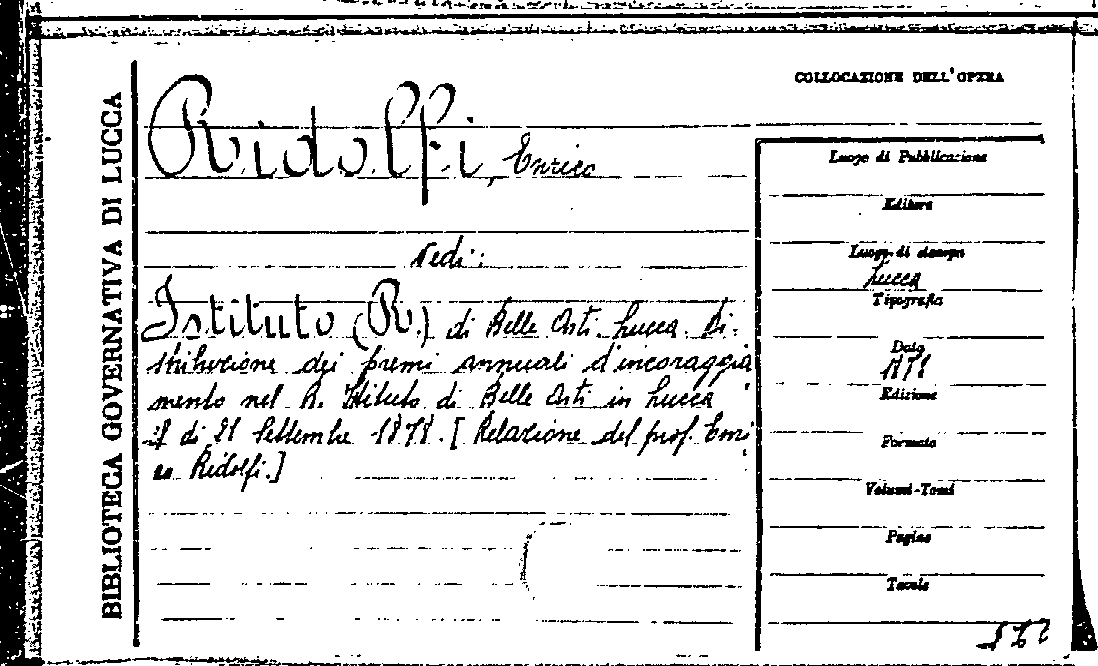 BIBLIOTECA GOVERNATIVA DI LUCCA
Ridolfi, Enrico
vedi:
Istituto (R.) di Belle Arti. Lucca. Di-
stribuzione dei premi annuali d'incoraggia
mento nel R. Istituto di Belle Arti in Lucca
il di 21 Settembre 1878. [Relazione del prof. Enri
co Ridolfi.]
COLLOCAZIONE DELL'OPERA
Luogo di Pubblicazione
Editore
Luogo di stampa
Lucca
Tipografia
Data
1878
Edizione
Formato
Volumi-Tomi
Pagine
Tavole